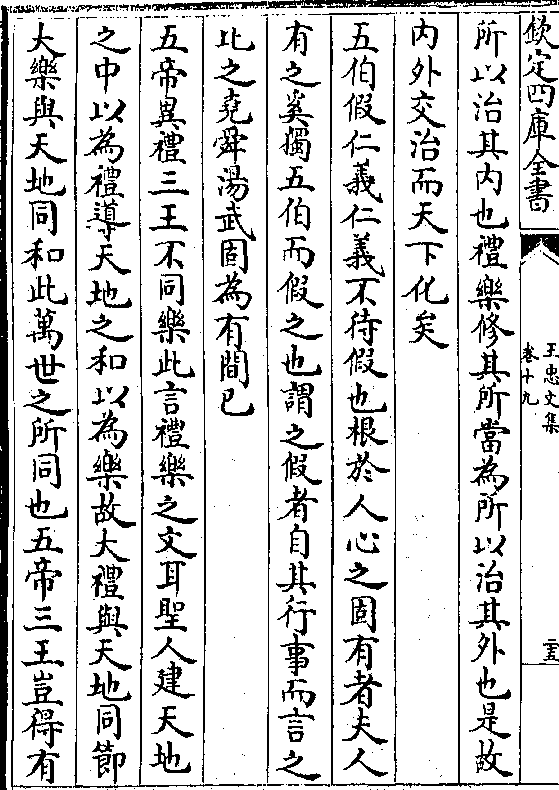 欽定四庫全書
王忠文集
卷十九
二五
所以治其内也禮樂修其所當為所以治其外也是故
内外交治而天下化矣
五伯假仁義仁義不待假也根於人心之固有者夫人
有之奚獨五伯而假之也謂之假者自其行事而言之
比之堯舜湯武固為有間已
五帝異禮三王不同樂此言禮樂之文耳聖人建天地
之中以為禮導天地之和以為樂故大禮與天地同節
大樂與天地同和此萬世之所同也五帝三王豈得有